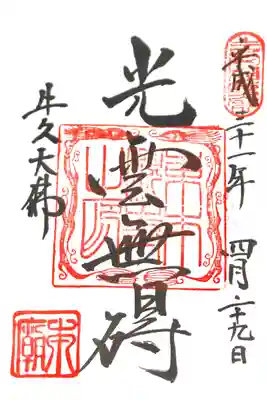 平成三十一年 四月二十九日
光雲無碍
牛久大佛